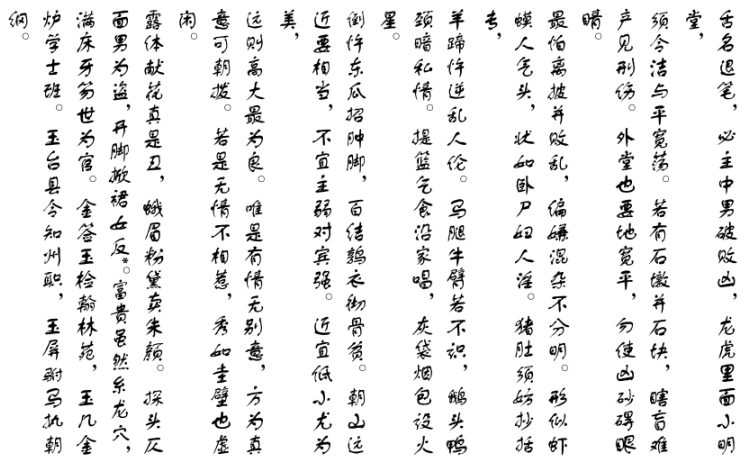 舌名退笔，必主中男破败凶，龙虎里面小明
堂，
须令洁与平宽荡。若有石墩并石块，瞎盲难
声见刑伤。外堂也要地宽平，勿使凶砂碍眼
睛。
最怕离披并败乱，偏嫌混杂不分明。形似虾
蟆人气头，状如卧尸妇人淫。猪肚须妨抄括
专，
羊蹄忤逆乱人伦。马腿牛臂若不识，鹅头鸭
颈暗私情。提篮乞食沿家唱，灰袋烟包设火
星。
倒忤东瓜招肿脚，百结鹑衣彻骨贫。朝山远
近要相当，不宜主弱对宾强。近宜低小尤为
美，
远则高大最为良。唯是有情无别意，方为真
意可朝拨。若是无情不相惹，秀如圭璧也虚
闲。
露体献花真是丑，蛾眉粉黛卖朱颜。探头仄
面男为盗，开脚掀裙女反*。富贵虽然系龙穴，
满床牙笏世为官。金签玉检翰林苑，玉几金
炉学士班。玉台县令知州职，玉屏驸马执朝
纲。